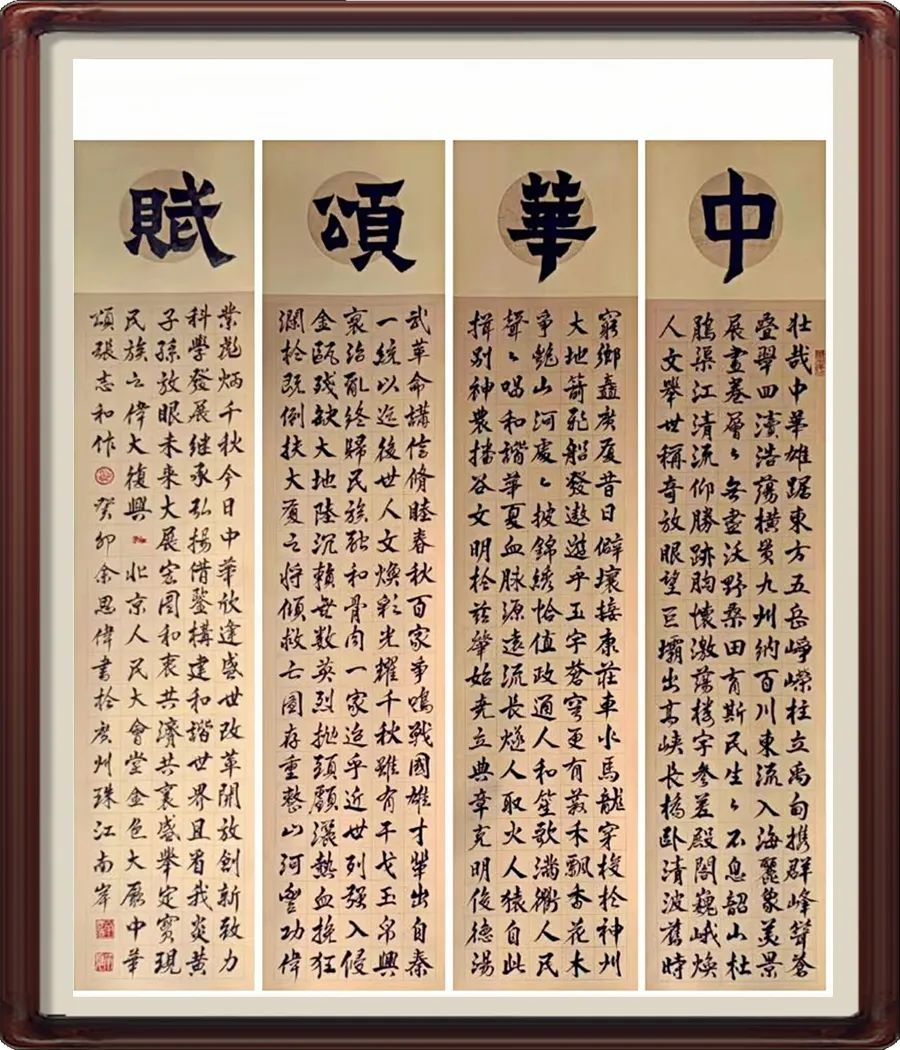 中華頌賦
壯哉中華雄踞東方五岳崢嶸柱立禹甸攜群峰聳蒼
疊翠四瀆浩蕩橫貫九州納百川東流入海麗象美景
展畫卷層々無盡沃野桑田育斯民生々不息韶山杜
鵑渠江清流仰勝跡胸懷激蕩樓宇參差殿閣巍峨煥
人文舉世稱奇放眼望巨壩出高峽長橋臥清波舊時
窮鄉矗廣厦昔日僻壤接康莊車水馬龍穿梭於神州
大地箭飛船發遨遊乎玉宇蒼穹更有菽禾飄香花木
爭艷山河處々披錦綉恰值政通人和笙歌滿衢人民
聲々唱和諧華夏血脉源遠流長燧人取火人猿自此
揖別神農播谷文明於兹肇始堯立典章克明俊德湯
武革命講信脩睦春秋百家爭鳴戰國雄才輩出自秦
一統以迄後世人文煥彩光耀千秋雖有干戈玉帛興
衰治亂終歸民族融和骨肉一家迨乎近世列強入侵
金甌殘缺大地陸沉賴無數英烈拋頭顱灑熱血挽狂
瀾於既倒扶大厦之將傾救亡圖存重整山河豐功偉
業彪炳千秋今日中華欣逢盛世改革開放創新致力
科學發展继承弘揚借鑒構建和諧世界且看我炎黃
子孫放眼未來大展宏圖和衷共濟共襄盛舉定實現
民族之偉大復興 北京人民大會堂金色大厅中華
頌張志和作 癸卯余思偉書於廣州珠江南岸